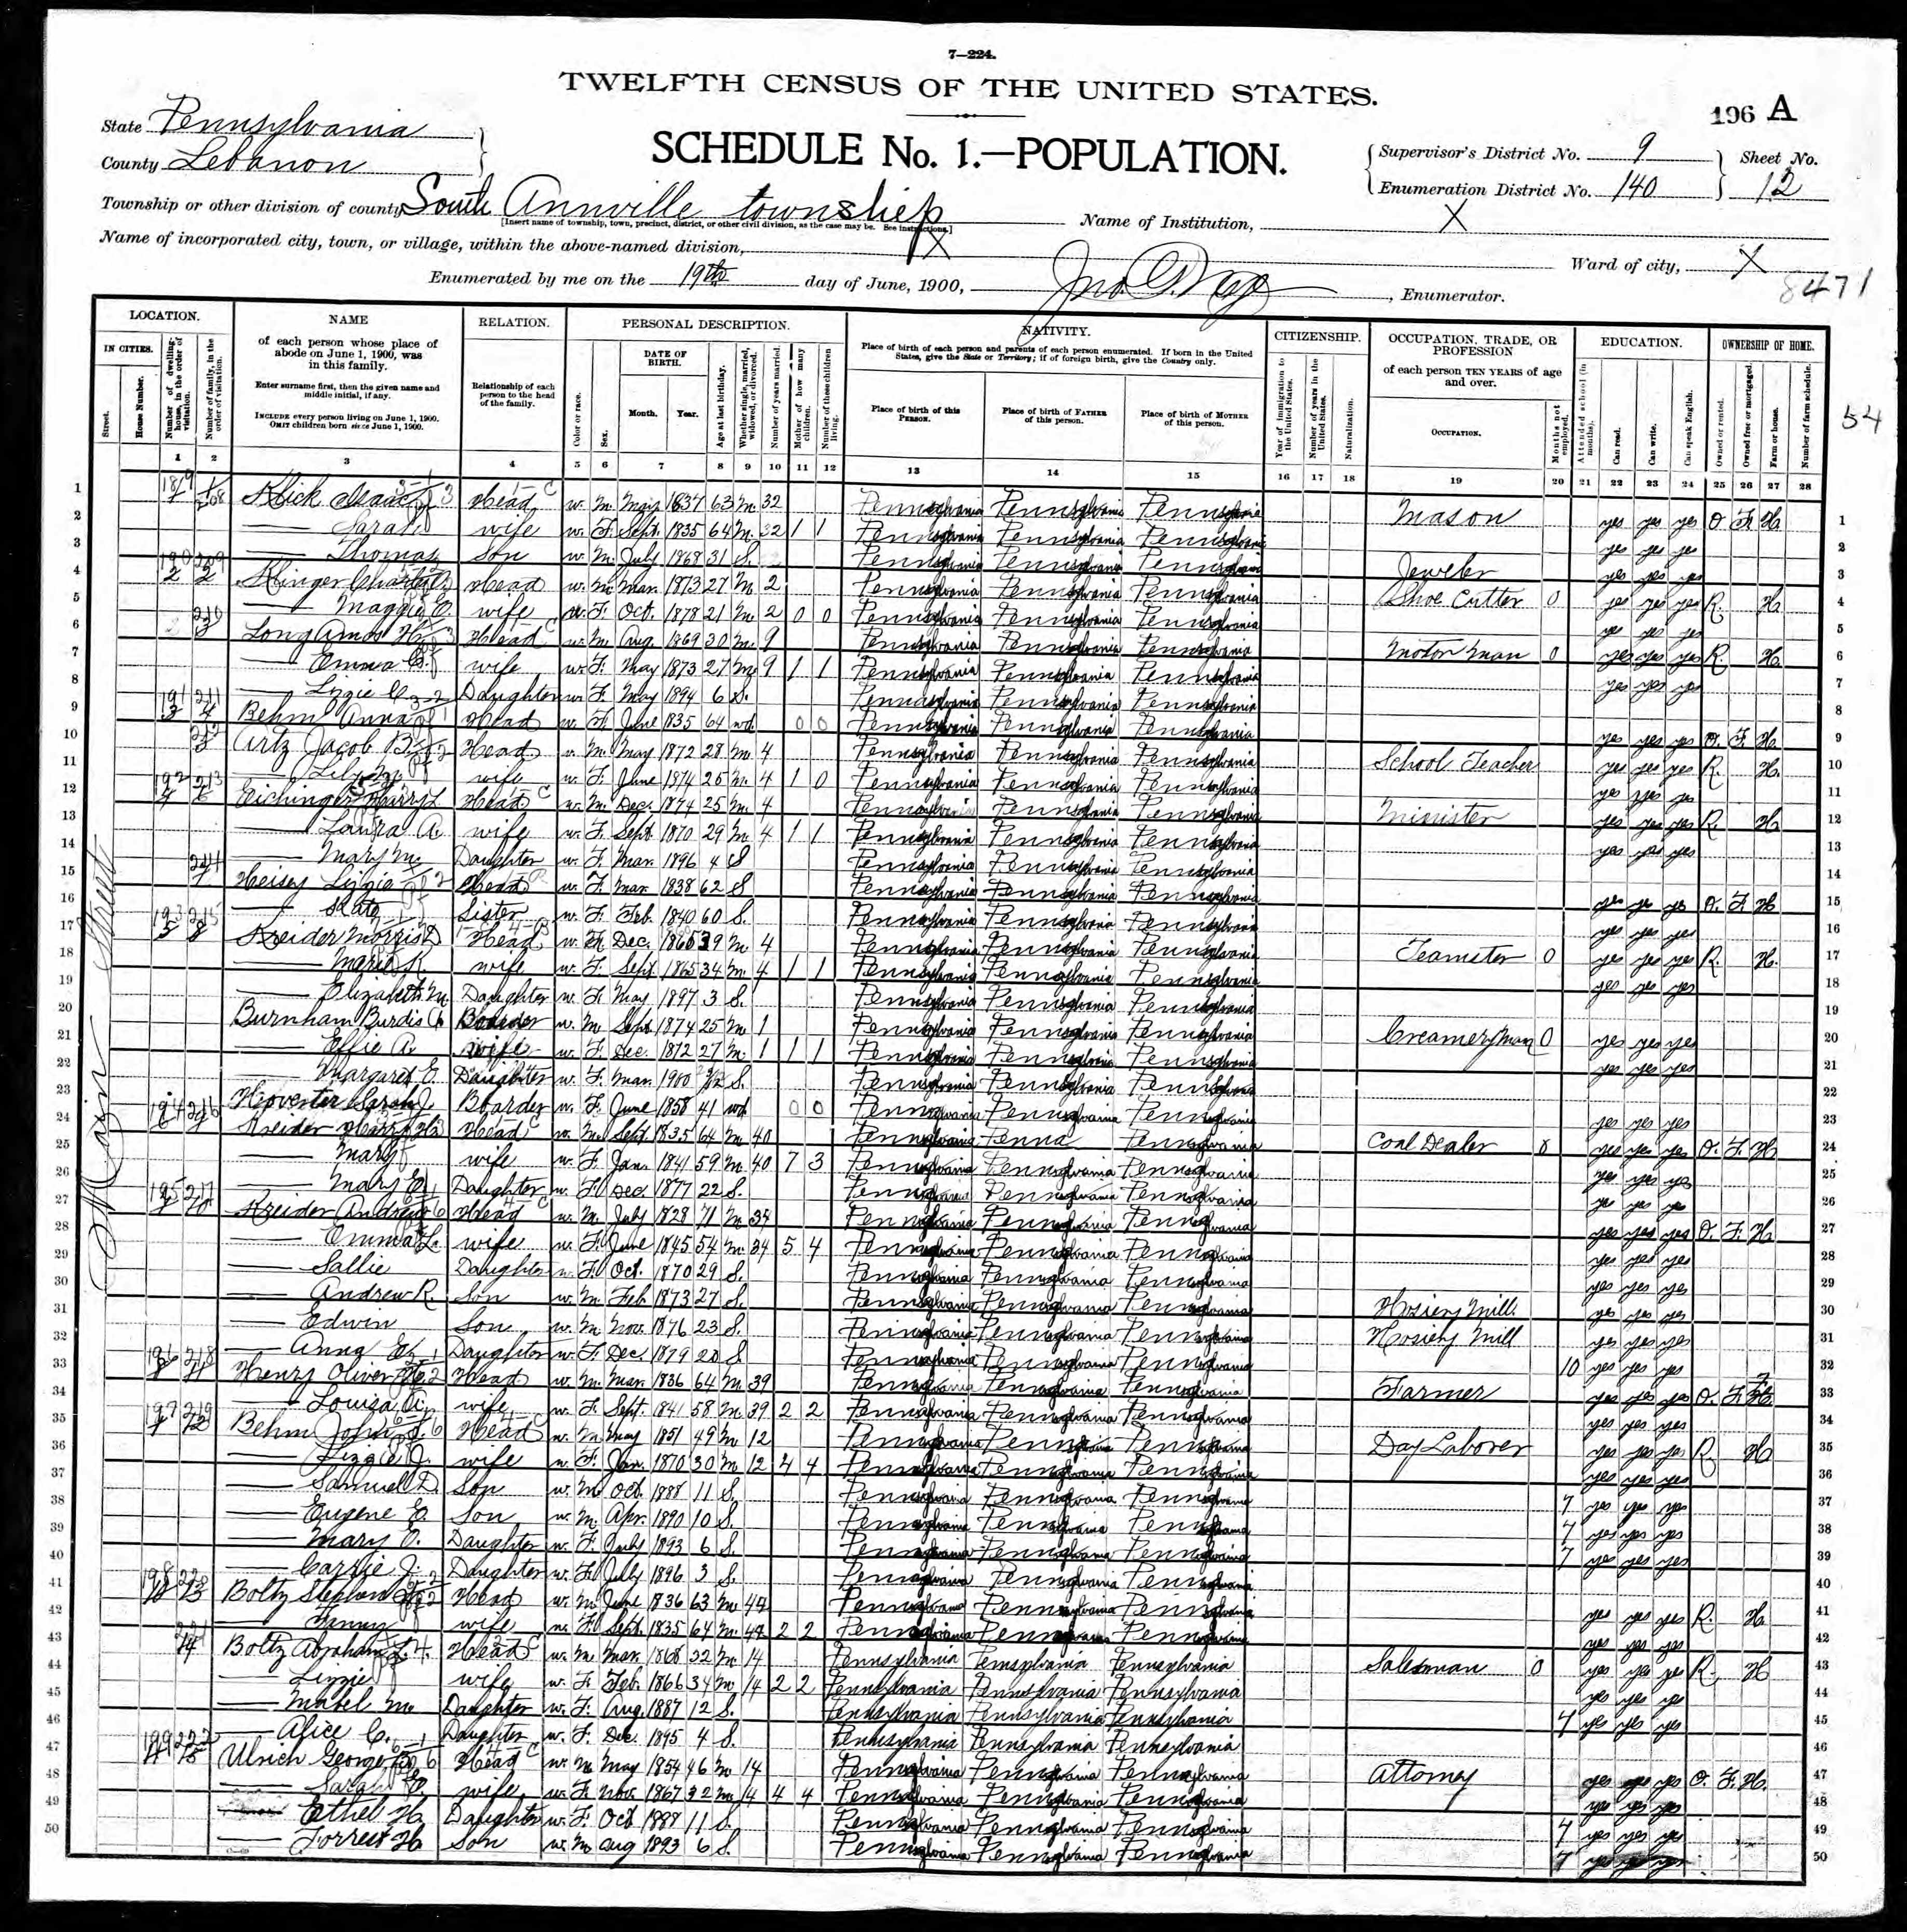 7—224.
TWELFTH CENSUS OF THE UNITED STATES.
196 A
State Pennsylvania
County Lebanon
SCHEDULE No. 1.—POPULATION.
Supervisor's District No. 9 Sheet No.
Enumeration District No. 140 12
Township or other division of county South Annville township Name of Institution, X
[Insert name of township, town, precinct, district, or other civil division, as the case may be. See instructions.]
Name of incorporated city, town, or village, within the above-named division, X Ward of city, X
8471
Enumerated by me on the 19th day of June, 1900, Enumerator.
54
LOCATION. NAME RELATION. PERSONAL DESCRIPTION. NATIVITY. CITIZENSHIP. OCCUPATION, TRADE, OR PROFESSION EDUCATION. OWNERSHIP OF HOME.
IN CITIES. Street. House Number. Number of dwelling-house, in the order of visitation. Number of family, in the order of visitation.
of each person whose place of abode on June 1, 1900, was in this family.
Enter surname first, then the given name and middle initial, if any.
INCLUDE every person living on June 1, 1900. OMIT children born since June 1, 1900.
Relationship of each person to the head of the family.
Color or race. Sex. DATE OF BIRTH. Month. Year. Age at last birthday. Whether single, married, widowed, or divorced. Number of years married. Mother of how many children. Number of these children living.
Place of birth of each person and parents of each person enumerated. If born in the United States, give the State or Territory; if of foreign birth, give the Country only.
Place of birth of this PERSON. Place of birth of FATHER of this person. Place of birth of MOTHER of this person.
Year of immigration to the United States. Number of years in the United States. Naturalization.
of each person TEN YEARS of age and over.
OCCUPATION. Months not employed.
Attended school (in months). Can read. Can write. Can speak English.
Owned or rented. Owned free or mortgaged. Farm or house. Number of farm schedule.
1 2 3 4 5 6 7 8 9 10 11 12 13 14 15 16 17 18 19 20 21 22 23 24 25 26 27 28
Main Street
1 Isaac Head w. M. 1837 63 M 32 Pennsylvania Pennsylvania Pennsylvania Mason yes yes yes O. F. H. 1
2 Sarah wife w. F. Sept. 1835 64 M. 32 1 1 Pennsylvania Pennsylvania Pennsylvania yes yes yes 2
3 Thomas Son w. M. July 1868 31 S. Pennsylvania Pennsylvania Pennsylvania Jeweler yes yes yes 3
4 Klinger Head w. M. Mar. 1873 27 M 2 Pennsylvania Pennsylvania Pennsylvania Shoe Cutter 0 yes yes yes R. H. 4
5 Maggie E. wife w. F. Oct. 1878 21 M 2 0 0 Pennsylvania Pennsylvania Pennsylvania yes yes yes 5
6 Long Amos H. Head w. M. Aug. 1869 30 M. 9 Pennsylvania Pennsylvania Pennsylvania Motor Man 0 yes yes yes R. H. 6
7 Emma wife w. F. May 1873 27 M 9 1 1 Pennsylvania Pennsylvania Pennsylvania yes yes yes 7
8 Lizzie Daughter w. F. May 1894 6 S. Pennsylvania Pennsylvania Pennsylvania 8
9 Behm Anna Head w. F. June 1835 64 wd 0 0 Pennsylvania Pennsylvania Pennsylvania yes yes yes O. F. H. 9
10 Artz Jacob B. Head w. M. May 1872 28 M 4 Pennsylvania Pennsylvania Pennsylvania School Teacher yes yes yes R. H. 10
11 wife w. F. June 1874 25 M. 4 1 0 Pennsylvania Pennsylvania Pennsylvania yes yes yes 11
12 Eichinger Harry L Head w. M. Dec. 1874 25 M. 4 Pennsylvania Pennsylvania Pennsylvania Minister yes yes yes R. H 12
13 Laura A. wife w. F. Sept. 1870 29 M 4 1 1 Pennsylvania Pennsylvania Pennsylvania yes yes yes 13
14 Mary M. Daughter w. F. Mar. 1896 4 S Pennsylvania Pennsylvania Pennsylvania 14
15 Heisey Lizzie Head w. F. Mar. 1838 62 S Pennsylvania Pennsylvania Pennsylvania yes yes yes O. F. H 15
16 Kate Sister w. F. Feb. 1840 60 S. Pennsylvania Pennsylvania Pennsylvania yes yes yes 16
17 Kreider Morris D Head w. Dec. 1860 39 M 4 Pennsylvania Pennsylvania Pennsylvania Teamster 0 yes yes yes R. H. 17
18 K. wife w. F. Sept. 1865 34 M 4 1 1 Pennsylvania Pennsylvania Pennsylvania yes yes yes 18
19 Elizabeth M. Daughter w. F. May 1897 3 S. Pennsylvania Pennsylvania Pennsylvania 19
20 Burnham Burdis Boarder w. M Sept 1874 25 M 1 Pennsylvania Pennsylvania Pennsylvania Creamery Man 0 yes yes yes 20
21 Effie A. wife w. F. Dec. 1872 27 M 1 1 1 Pennsylvania Pennsylvania Pennsylvania yes yes yes 21
22 Margaret E. Daughter w. F. Mar. 1900 2/12 S. Pennsylvania Pennsylvania Pennsylvania 22
23 Sarah J. Boarder w. F. June 1858 41 wd 0 0 Pennsylvania Pennsylvania Pennsylvania yes yes yes 23
24 Kreider Harry H. Head w. M. Sept. 1835 64 M. 40 Pennsylvania Penna Pennsylvania Coal Dealer yes yes yes O. F. H. 24
25 Mary wife w. F. Jan. 1841 59 M. 40 7 3 Pennsylvania Pennsylvania Pennsylvania yes yes yes 25
26 Mary E. Daughter w. F. Dec. 1877 22 S. Pennsylvania Pennsylvania Pennsylvania yes yes yes 26
27 Kreider Andrew Head w. M. July 1828 71 M 34 Pennsylvania Pennsylvania Pennsylvania yes yes yes O. F. H. 27
28 Emma L. wife w. F. June 1845 54 M 34 5 4 Pennsylvania Pennsylvania Pennsylvania yes yes yes 28
29 Sallie Daughter w. F. Oct. 1870 29 S. Pennsylvania Pennsylvania Pennsylvania yes yes yes 29
30 Andrew R Son w. M. Feb. 1873 27 S. Pennsylvania Pennsylvania Pennsylvania Hosiery Mill. yes yes yes 30
31 Edwin Son w. M Nov. 1876 23 S. Pennsylvania Pennsylvania Pennsylvania Hosiery Mill yes yes yes 31
32 Anna Daughter w. F. Dec. 1879 20 S Pennsylvania Pennsylvania Pennsylvania 10 yes yes yes 32
33 Henry Oliver Head w. M. Mar. 1836 64 M 39 Pennsylvania Pennsylvania Pennsylvania Farmer yes yes yes O. F. 33
34 Louisa A. wife w. F. Sept. 1841 58 M 39 2 2 Pennsylvania Pennsylvania Pennsylvania yes yes yes 34
35 Behm John Head w. M May 1851 49 M 12 Pennsylvania Pennsylvania Pennsylvania Day Laborer yes yes yes R. H 35
36 Lizzie J. wife w. F. Jan. 1870 30 M 12 4 4 Pennsylvania Pennsylvania Pennsylvania yes yes yes 36
37 Samuel D Son w. M. Oct. 1888 11 S. Pennsylvania Pennsylvania Pennsylvania 7 yes yes yes 37
38 Eugene E. Son w. M. Apr. 1890 10 S. Pennsylvania Pennsylvania Pennsylvania 7 yes yes yes 38
39 Mary Daughter w. F. July 1893 6 S. Pennsylvania Pennsylvania Pennsylvania 7 yes yes yes 39
40 Carrie J. Daughter w. F. July 1896 3 S. Pennsylvania Pennsylvania Pennsylvania 40
41 Boltz Stephen Head w. M June 1836 63 M 44 Pennsylvania Pennsylvania Pennsylvania yes yes yes R. H. 41
42 wife w. F. Sept. 1835 64 M. 44 2 2 Pennsylvania Pennsylvania Pennsylvania yes yes yes 42
43 Boltz Abraham L. Head w. M. Mar. 1868 32 M 14 Pennsylvania Pennsylvania Pennsylvania Salesman 0 yes yes yes R. H 43
44 Lizzie wife w. F. Feb. 1866 34 M 14 2 2 Pennsylvania Pennsylvania Pennsylvania yes yes yes 44
45 Mabel M. Daughter w. F. Aug. 1887 12 S. Pennsylvania Pennsylvania Pennsylvania 7 yes yes yes 45
46 Alice C. Daughter w. F. Dec. 1895 4 S. Pennsylvania Pennsylvania Pennsylvania 46
47 Ulrich George Head w. M May 1854 46 M 14 Pennsylvania Pennsylvania Pennsylvania Attorney yes yes yes O. F. H. 47
48 Sarah wife w. F. Nov. 1867 32 M 14 4 4 Pennsylvania Pennsylvania Pennsylvania yes yes yes 48
49 Ethel H. Daughter w. F. Oct 1888 11 S. Pennsylvania Pennsylvania Pennsylvania 7 yes yes yes 49
50 Forrest H Son w. M Aug 1893 6 S. Pennsylvania Pennsylvania Pennsylvania 7 yes 50